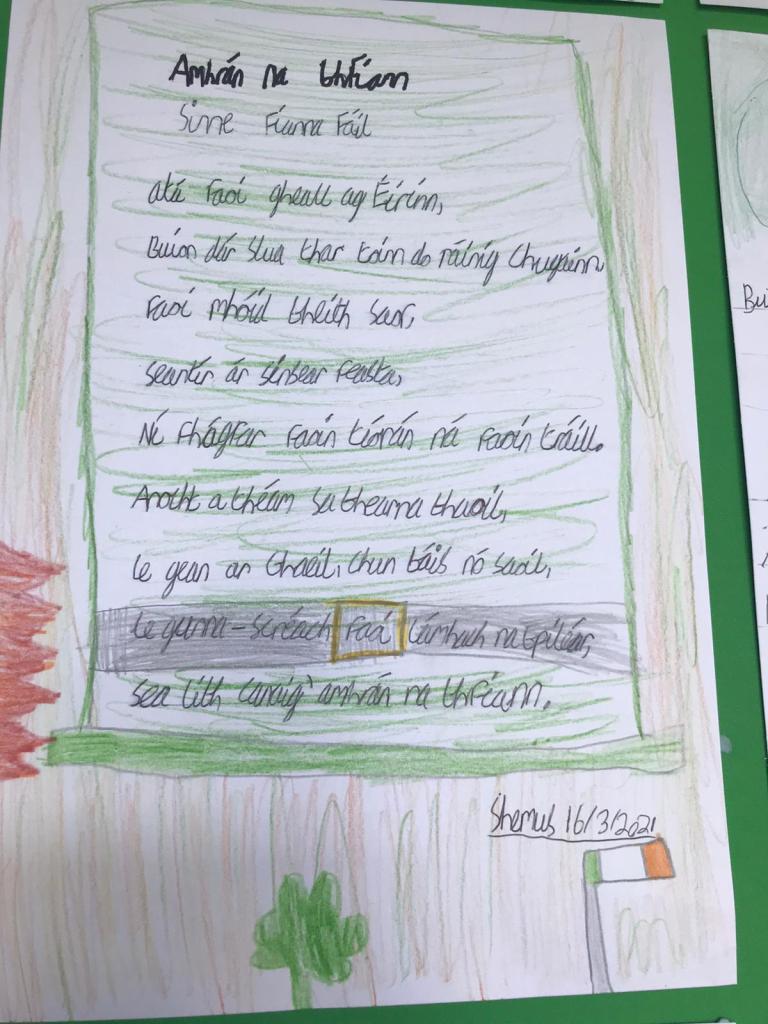 Amhrán na bhFiann
Sinne Fianna Fáil
atá Faoi gheall ag Éirinn,
Buíon dár slua thar toinn do ráinig Chugainn
Faoi mhóid bheith saor,
seantír ár sinsear feasta,
Ní Fhágfar Faoin tíorán ná Faoin tráill.
Anocht a théam sa bhearna bhaoil,
le gean ar Ghaeil, chun báis nó saoil,
le gunna-scréach Faá lámhach na bpiléar,
seo libh canaig' amhrán na bhFiann.
Shemus 16/3/2021
Bu